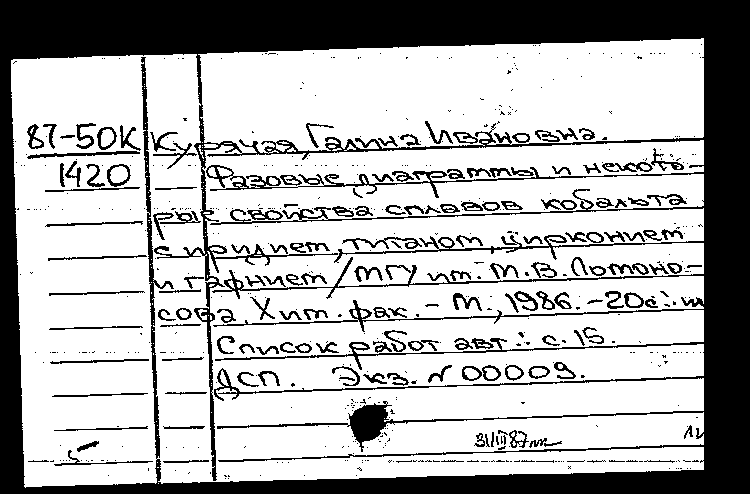 87-50К Курячая, Галина Ивановна.
1420 Фазовые диаграммы и некото-
рые свойства сплавов кобальта
с иридием, титаном, цирконием
и гафнием / МГУ им. М.В. Ломоно-
сова. Хим. фак. - М., 1986. - 20с.: ил
Список работ авт.: с. 15.
ДСП. Экз. N 00009.
31/III 87